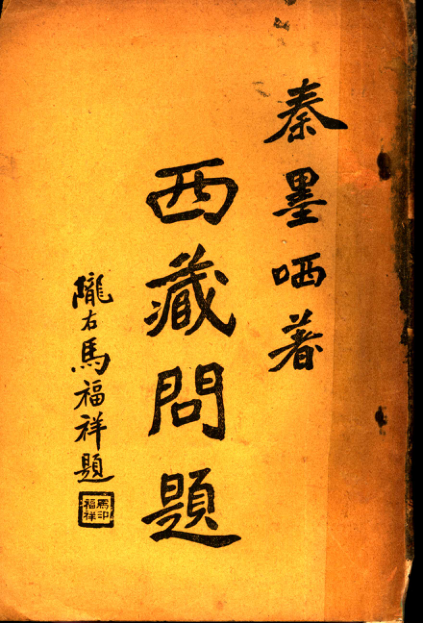 秦墨哂著
西藏問題
隴右馬福祥題
馬福祥印